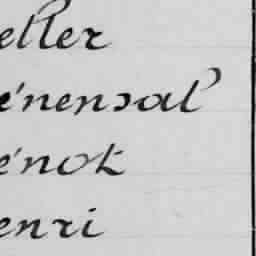 eller
énensal
énot
enri